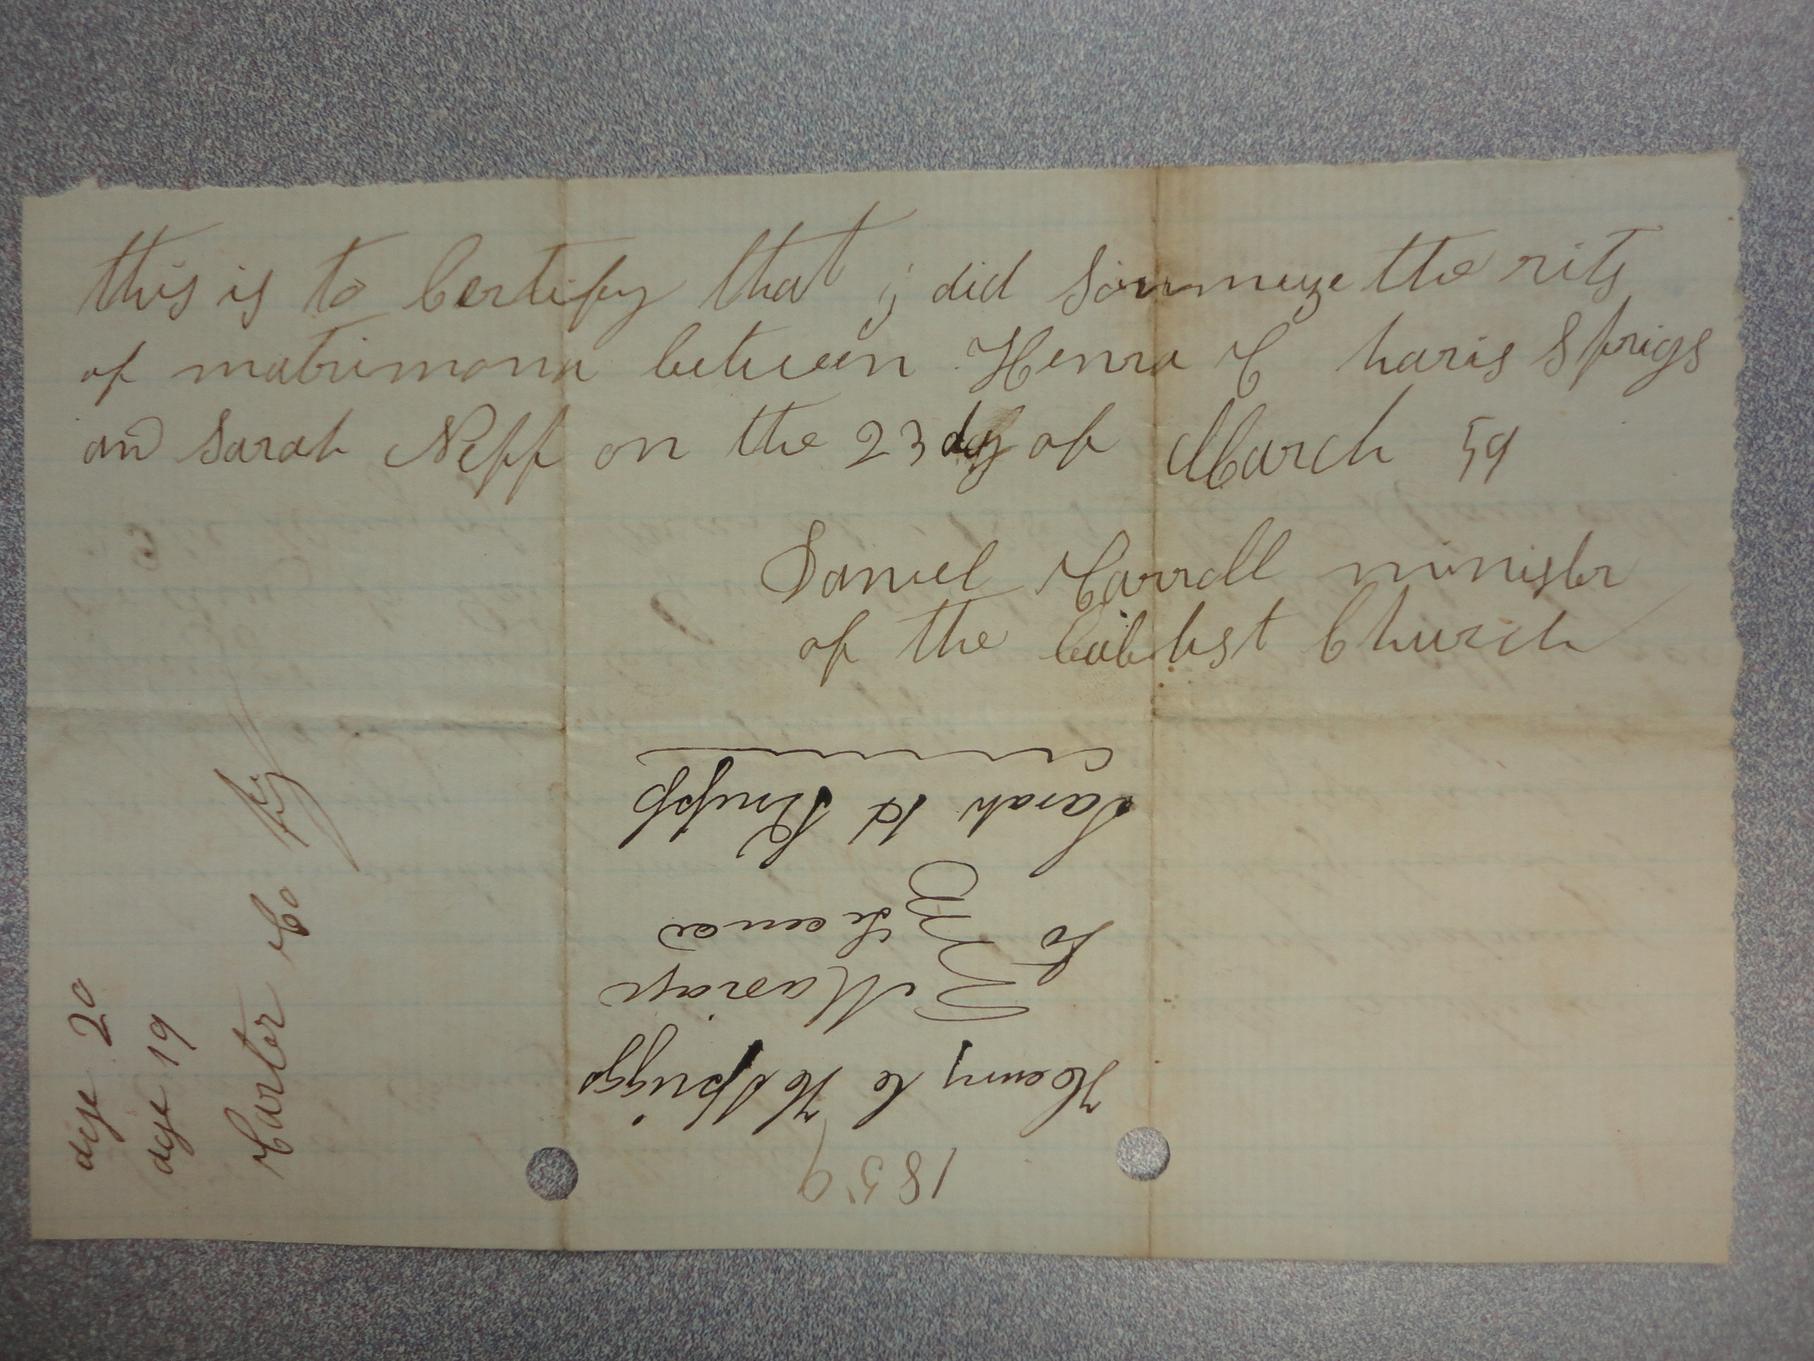 this is to Certify that i did Sommeize the rits
of matrimona between Henra C haris Sprigs
and Sarah Neff on the 23 day of March 59
Daniel Carroll minister
of the babtist Church
age 20
age 19
Carter Co Ky
1859
Henry C H Spriggs
Mariage
To Licence
Sarah H Kneff